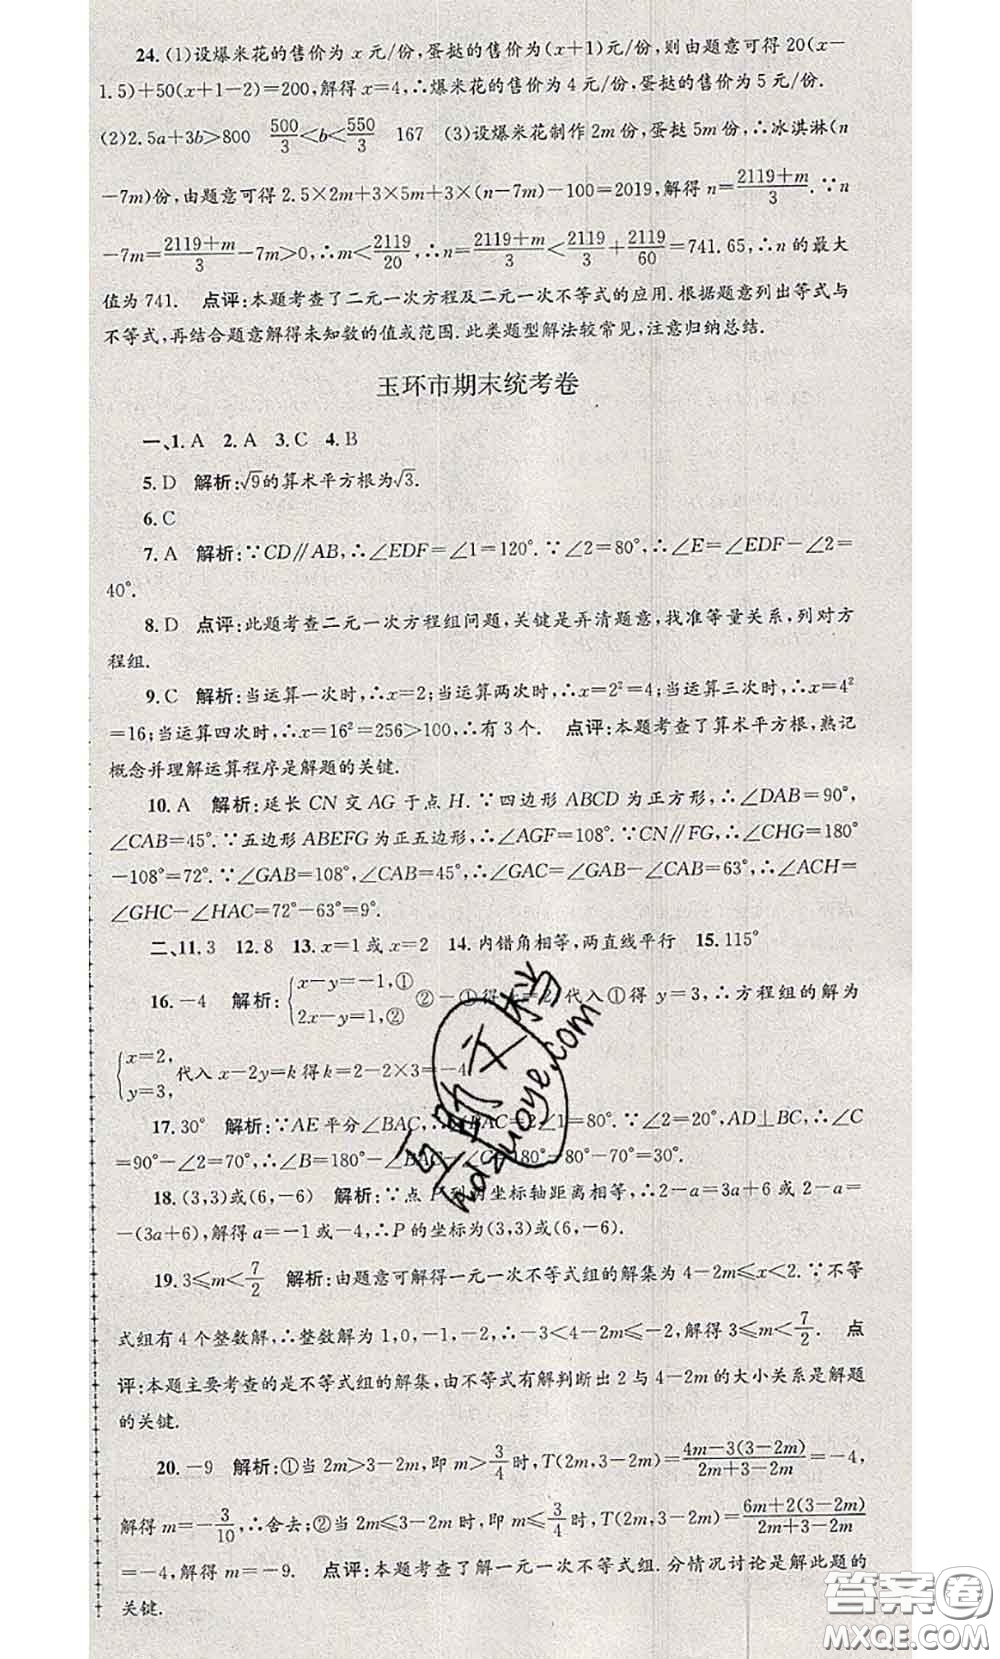 24. (1)设爆米花的售价为 x 元/份,蛋挞的售价为(x+1)元/份,则由题意可得 20(x-
1.5)+50(x+1-2)=200,解得 x=4,∴爆米花的售价为 4 元/份,蛋挞的售价为 5 元/份.
(2)2.5a+3b>800 500/3<b<550/3 167 (3)设爆米花制作 2m 份,蛋挞 5m 份,∴冰淇淋(n
-7m)份,由题意可得 2.5×2m+3×5m+3×(n-7m)-100=2019,解得 n=(2119+m)/3. ∵n
-7m=(2119+m)/3-7m>0,∴m<2119/20,∴n=(2119+m)/3<2119/3+2119/60=741.65,∴n 的最大
值为 741. 点评:本题考查了二元一次方程及二元一次不等式的应用.根据题意列出等式与
不等式,再结合题意解得未知数的值或范围.此类题型解法较常见,注意归纳总结.
玉环市期末统考卷
一、1. A 2. A 3. C 4. B
5. D 解析:√9的算术平方根为√3.
6. C
7. A 解析:∵CD∥AB,∴∠EDF=∠1=120°.∵∠2=80°,∴∠E=∠EDF-∠2=
40°.
8. D 点评:此题考查二元一次方程组问题,关键是弄清题意,找准等量关系,列对方
程组.
9. C 解析:当运算一次时,∴x=2;当运算两次时,∴x=2²=4;当运算三次时,∴x=4²
=16;当运算四次时,∴x=16²=256>100,∴有 3 个. 点评:本题考查了算术平方根,熟记
概念并理解运算程序是解题的关键.
10. A 解析:延长 CN 交 AG 于点 H.∵四边形 ABCD 为正方形,∴∠DAB=90°,
∠CAB=45°.∵五边形 ABEFG 为正五边形,∴∠AGF=108°.∵CN∥FG,∴∠CHG=180°
-108°=72°.∵∠GAB=108°,∠CAB=45°,∴∠GAC=∠GAB-∠CAB=63°,∴∠ACH=
∠GHC-∠HAC=72°-63°=9°.
二、11. 3 12. 8 13. x=1 或 x=2 14. 内错角相等,两直线平行 15. 115°
16. -4 解析:{x-y=-1,① 2x-y=1,② ②-①得 x=2,代入①得 y=3,∴方程组的解为
{x=2, y=3, 代入 x-2y=k 得 k=2-2×3=-4
17. 30° 解析:∵AE 平分∠BAC,∴∠BAC=2∠1=80°.∵∠2=20°,AD⊥BC,∴∠C
=90°-∠2=70°,∴∠B=180°-∠BAC-∠C=180°-80°-70°=30°.
18. (3,3)或(6,-6) 解析:∵点 P 到两坐标轴距离相等,∴2-a=3a+6 或 2-a=
-(3a+6),解得 a=-1 或 -4,∴P 的坐标为(3,3)或(6,-6).
19. 3≤m<7/2 解析:由题意可解得一元一次不等式组的解集为 4-2m≤x<2.∵不等
式组有 4 个整数解,∴整数解为 1,0,-1,-2,∴-3<4-2m≤-2,解得 3≤m<7/2. 点
评:本题主要考查的是不等式组的解集,由不等式有解判断出 2 与 4-2m 的大小关系是解题
的关键.
20. -9 解析:①当 2m>3-2m,即 m>3/4时,T(2m,3-2m)=(4m-3(3-2m))/(2m+3-2m)=-4,
解得 m=-3/10,∴舍去;②当 2m≤3-2m时,即 m≤3/4时,T(2m,3-2m)=(6m+2(3-2m))/(2m+3-2m)
=-4,解得 m=-9. 点评:本题考查了解一元一次不等式组.分情况讨论是解此题的
关键.
答案卷
MXQE.COM